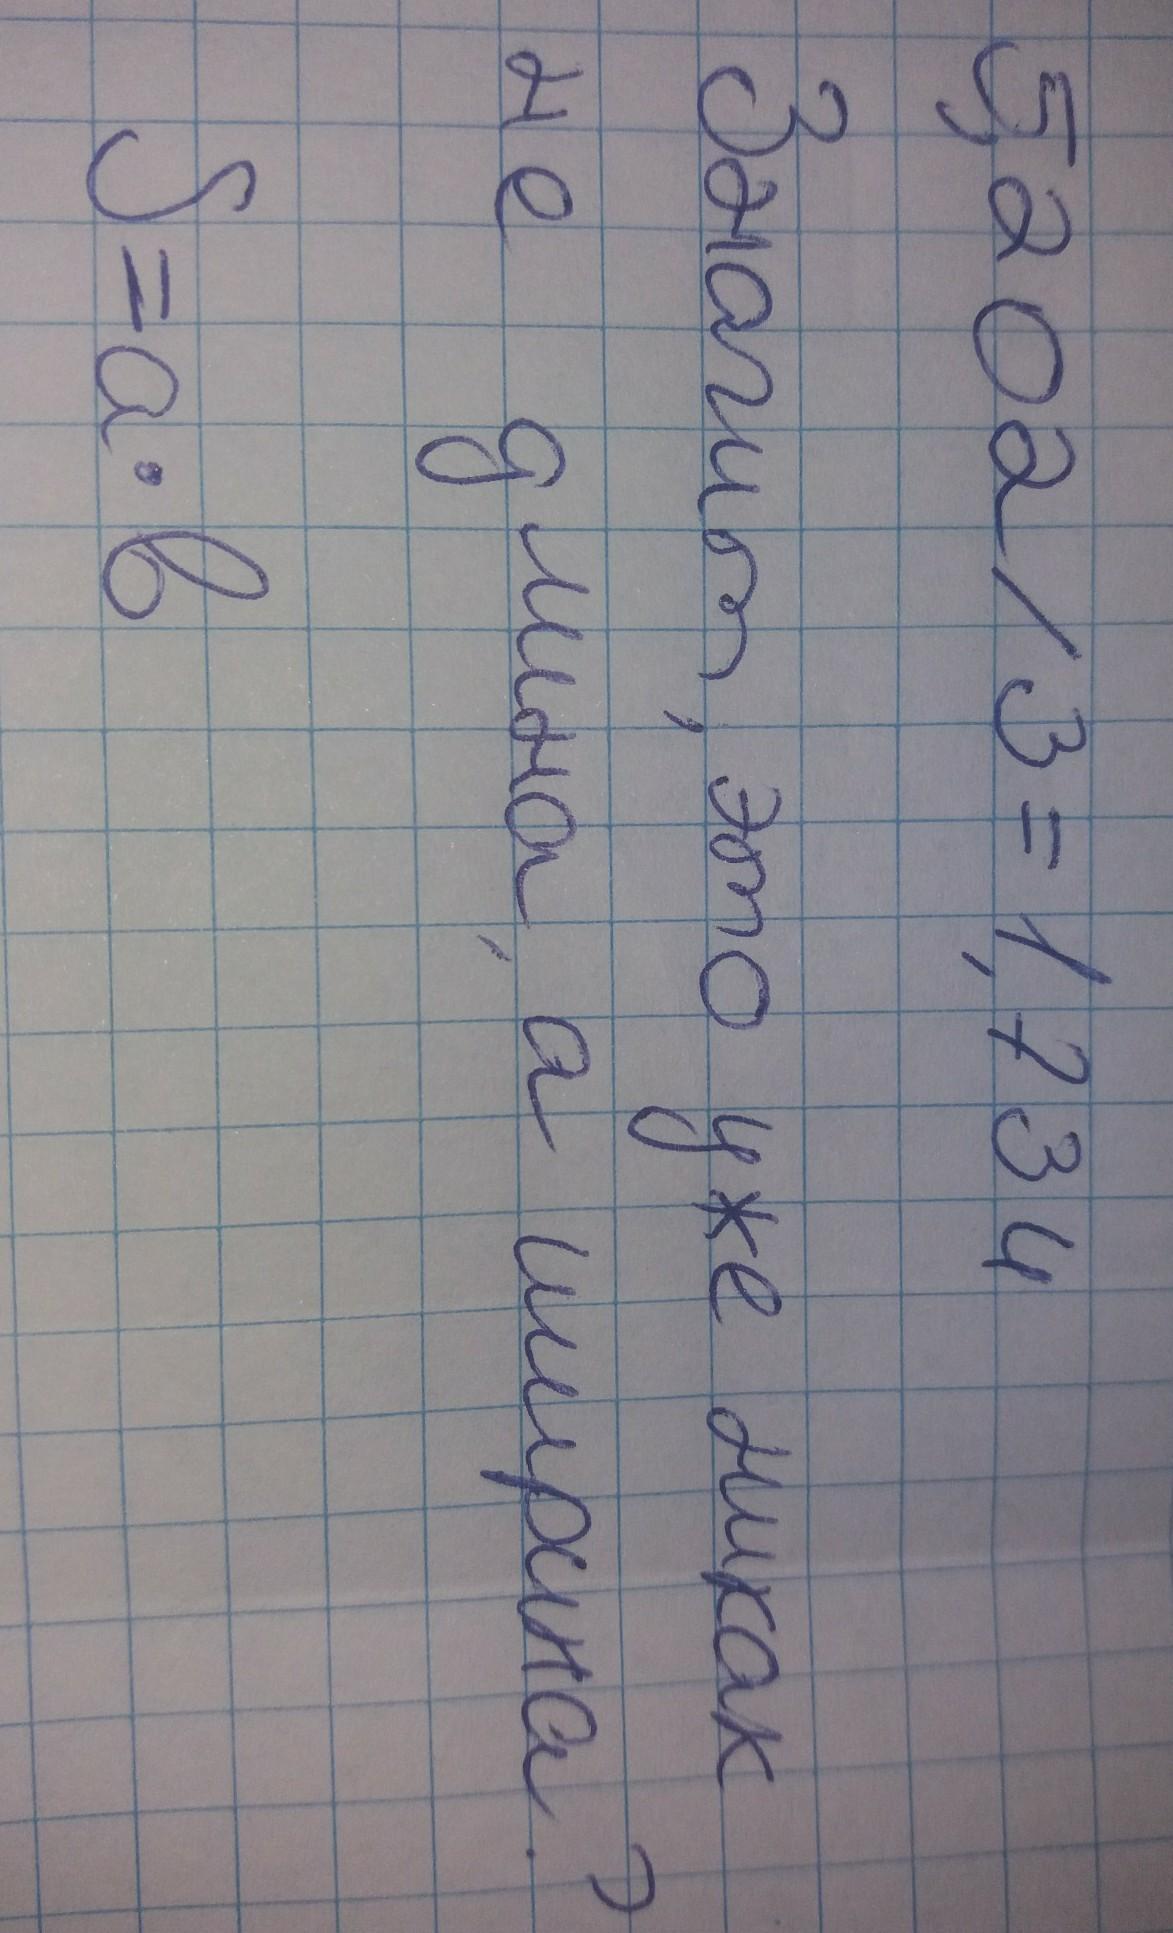 5,202/3=1,734
Значит, это уже никак
не длина, а ширина?
S=a·b